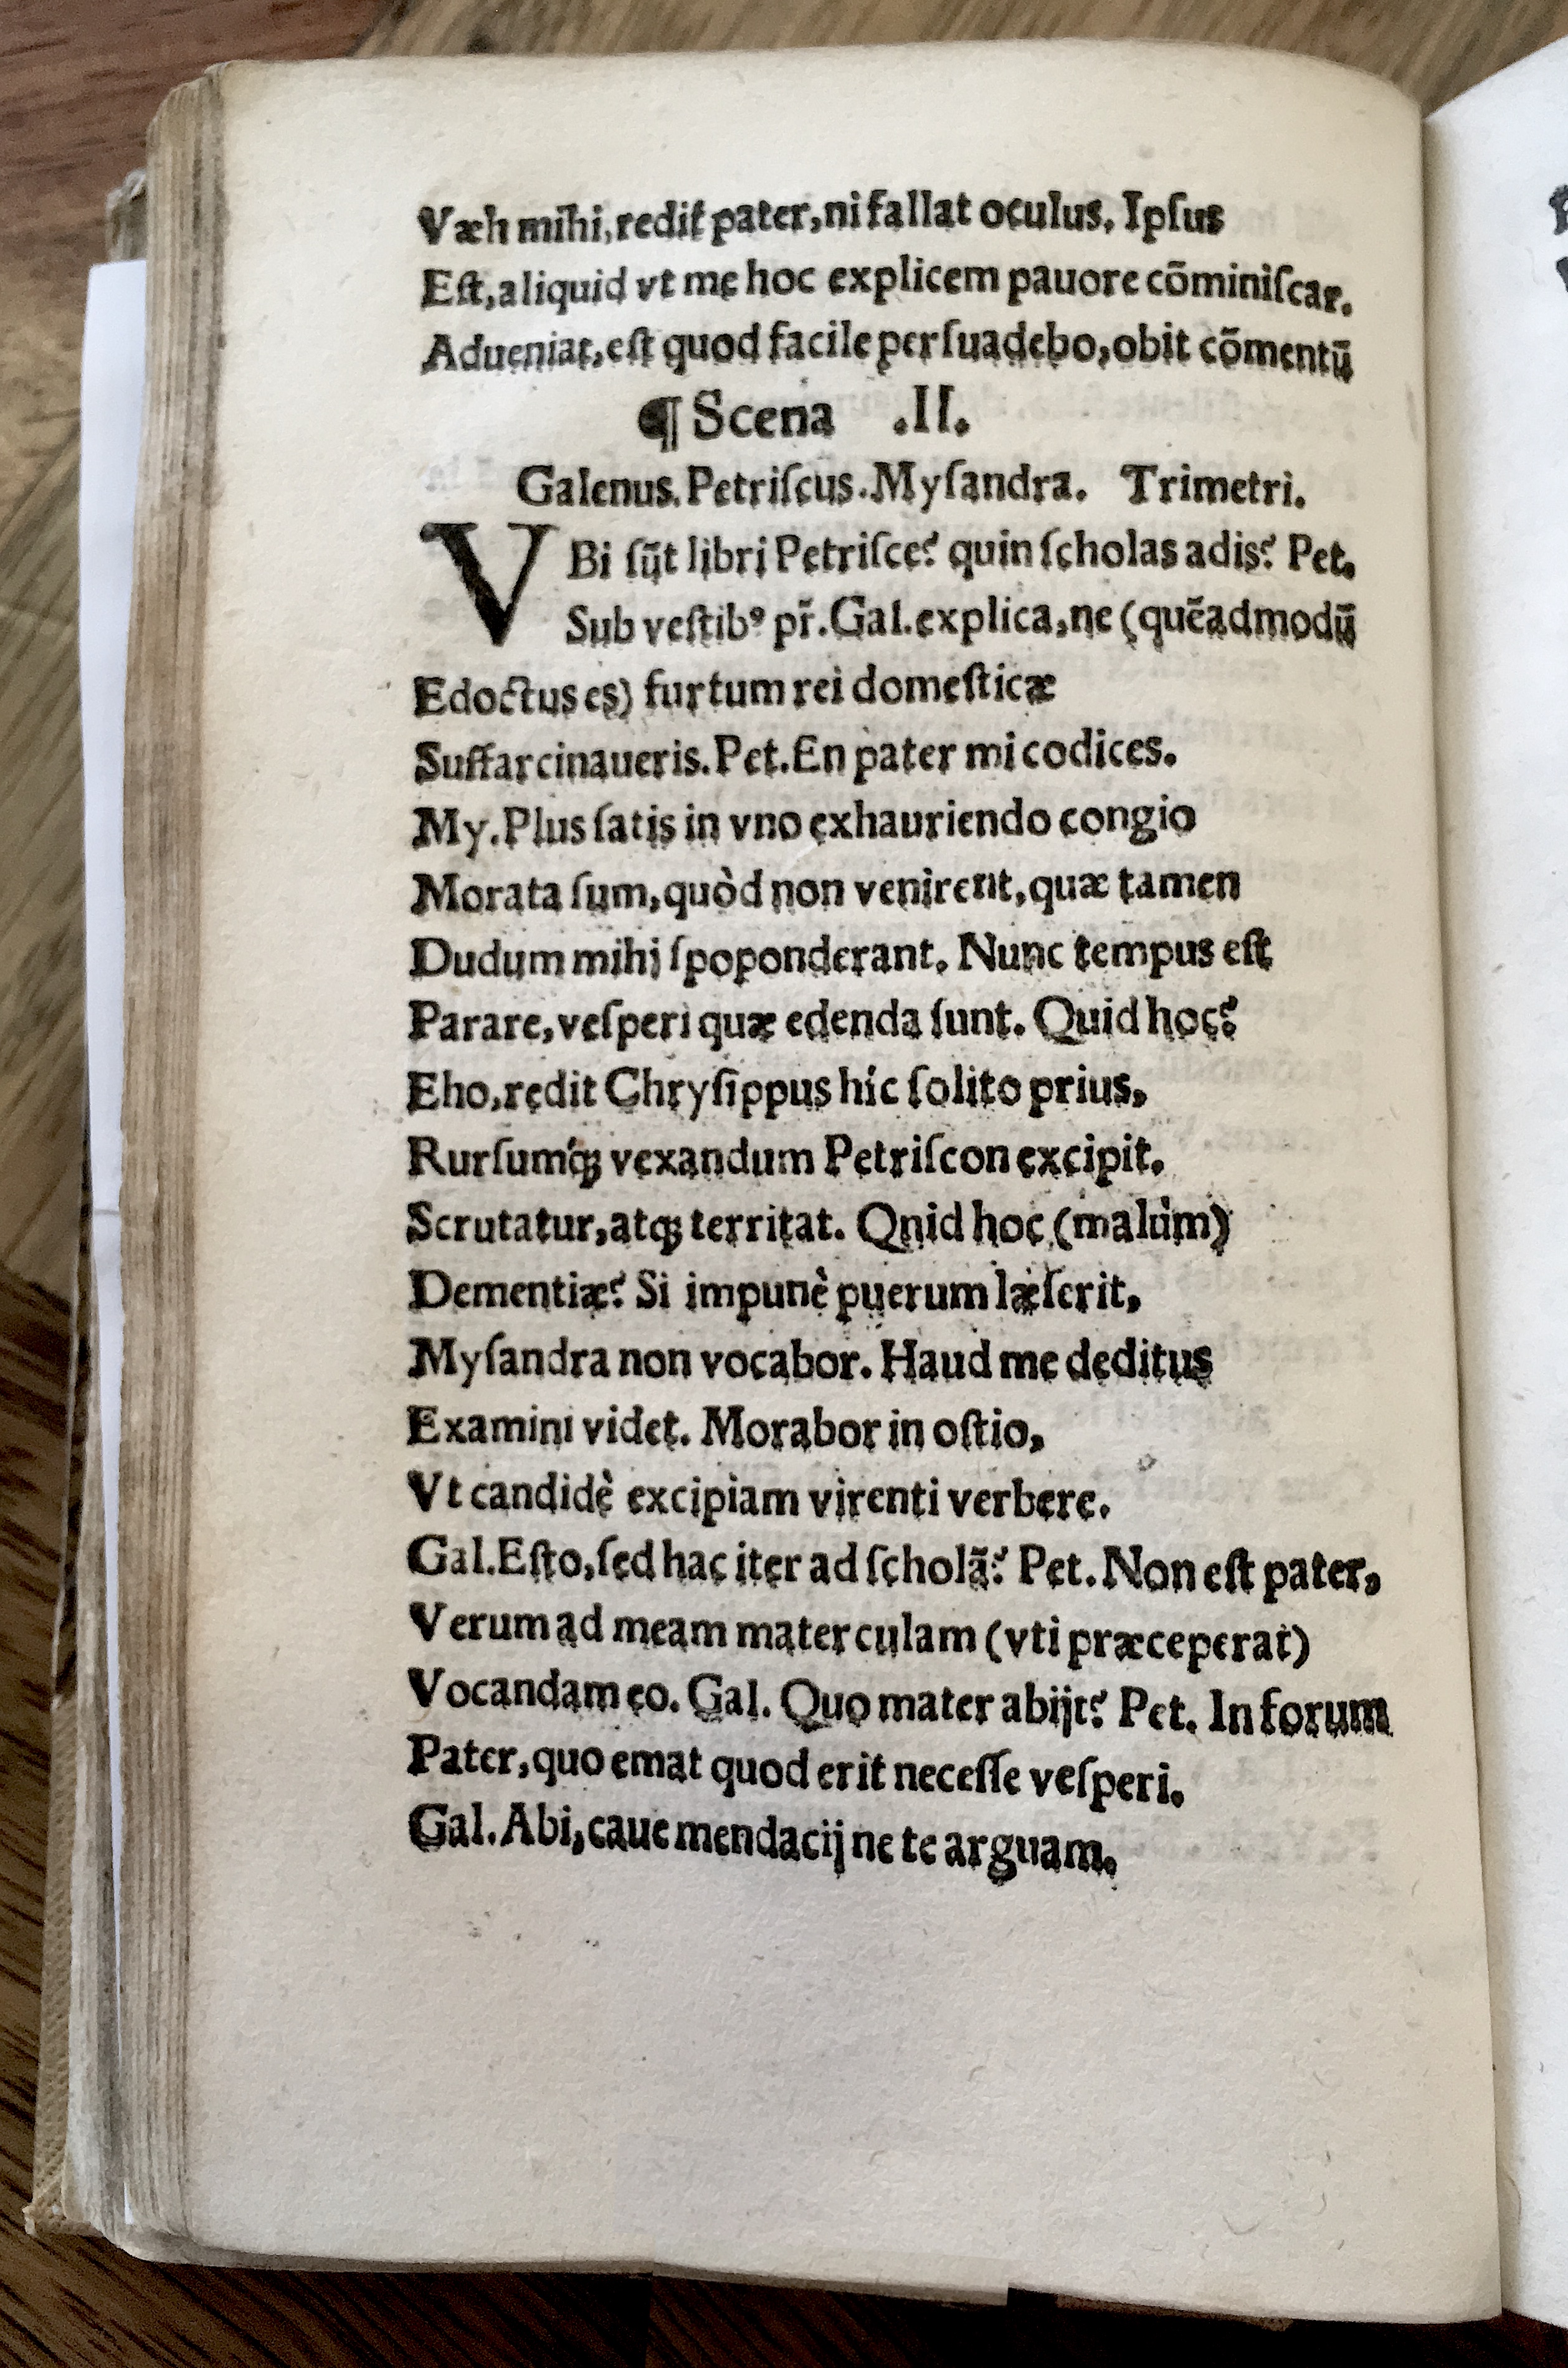 Væh mihi, redit pater, ni fallat oculus. Ipſus
Eſt, aliquid vt me hoc explicem pauore cõminiſcar.
Adueniat, eſt quod facile perſuadebo, obit cõmentũ
¶ Scena .II.
Galenus. Petriſcus. Myſandra. Trimetri.
VBi ſũt libri Petriſce? quin ſcholas adis? Pet.
Sub veſtibꝰ pr̃. Gal. explica, ne (quẽadmodũ
Edoctus es) furtum rei domeſticæ
Suffarcinaueris. Pet. En pater mi codices.
My. Plus ſatis in vno exhauriendo congio
Morata ſum, quòd non venirent, quæ tamen
Dudum mihi ſpoponderant. Nunc tempus eſt
Parare, veſperi quæ edenda ſunt. Quid hoc?
Eho, redit Chryſippus híc ſolito prius,
Rurſumq́ꝫ vexandum Petriſcon excipit.
Scrutatur, atqꝫ territat. Qnid hoc (malùm)
Dementiæ? Si impunè puerum læſerit,
Myſandra non vocabor. Haud me deditus
Examini videt. Morabor in oſtio,
Vt candidè excipiam virenti verbere.
Gal. Eſto, ſed hac iter ad ſcholã? Pet. Non eſt pater,
Verum ad meam materculam (vti præceperat)
Vocandam eo. Gal. Quo mater abijt? Pet. In forum
Pater, quo emat quod erit neceſſe veſperi.
Gal. Abi, caue mendacij ne te arguam.